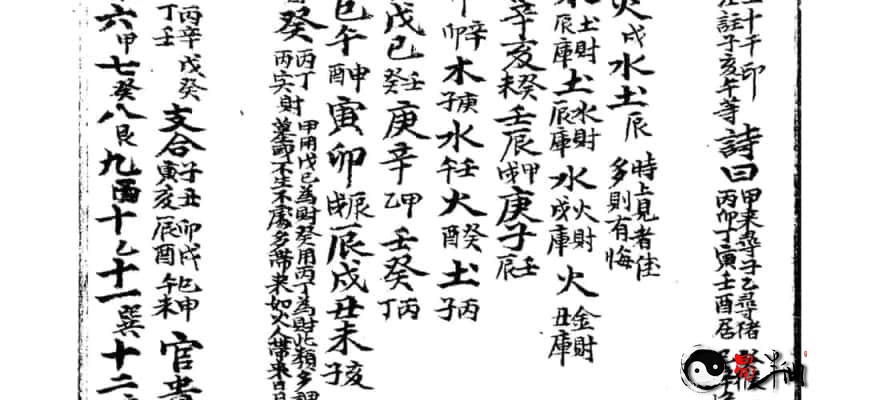 十干印
註子亥午等
詩曰
甲来尋子乙尋猪
丙卯丁寅壬酉居
火戌水土辰
時上見者佳
多則有悔
土財辰庫土水財辰庫水火財戌庫火金財丑庫
辛亥未癸壬辰戌甲庚子辰壬
辛卯木子庚水午壬火酉癸土子丙
戊己癸壬庚辛乙甲壬癸丁丙
巳午酉申寅卯戌辰辰戌丑未亥
癸
丙丁
丙寅財
甲用戊己為財癸用丙丁為財此類多
不生不處多帶来如火人帶来日
丙辛戊癸
丁壬
支合
子丑卯戌巳申
寅亥辰酉午未
官貴
六甲七癸八艮九酉十乙十一巽十二